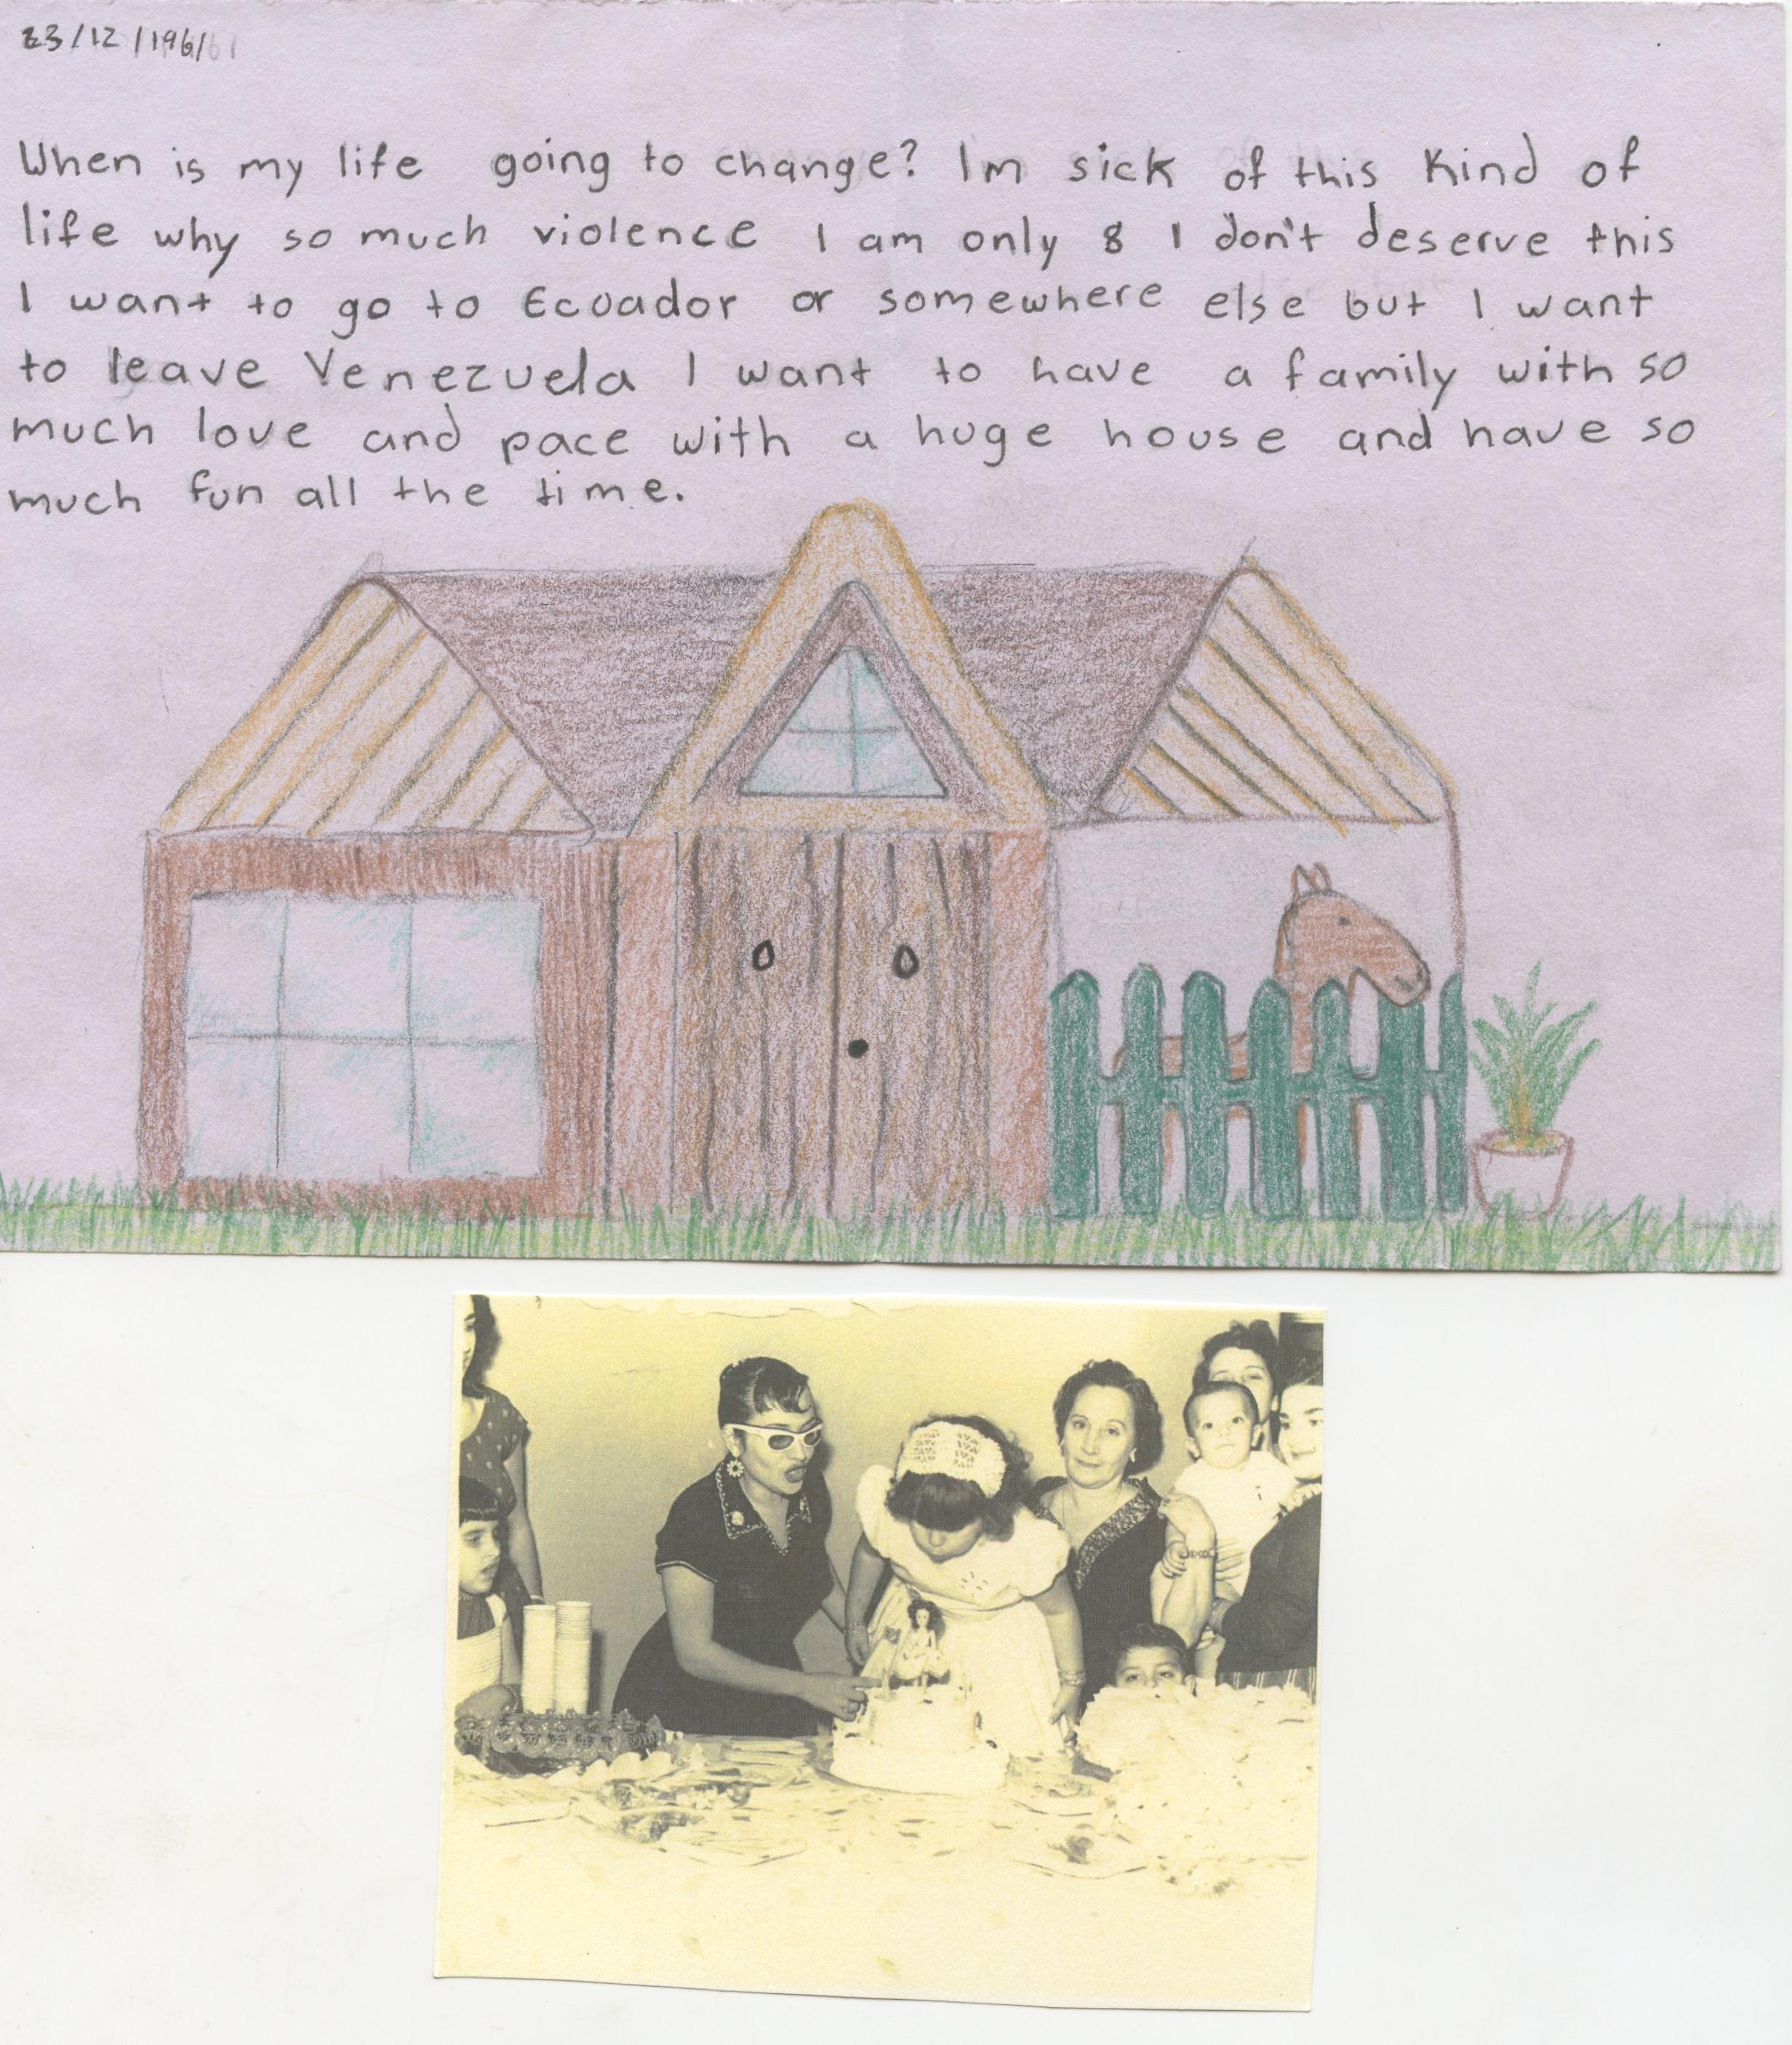 23/12/1961
When is my life going to change? Im sick of this kind of
life why so much violence I am only 8 I don't deserve this
I want to go to Ecuador or somewhere else but I want
to leave Venezuela I want to have a family with so
much love and pace with a huge house and have so
much fun all the time.